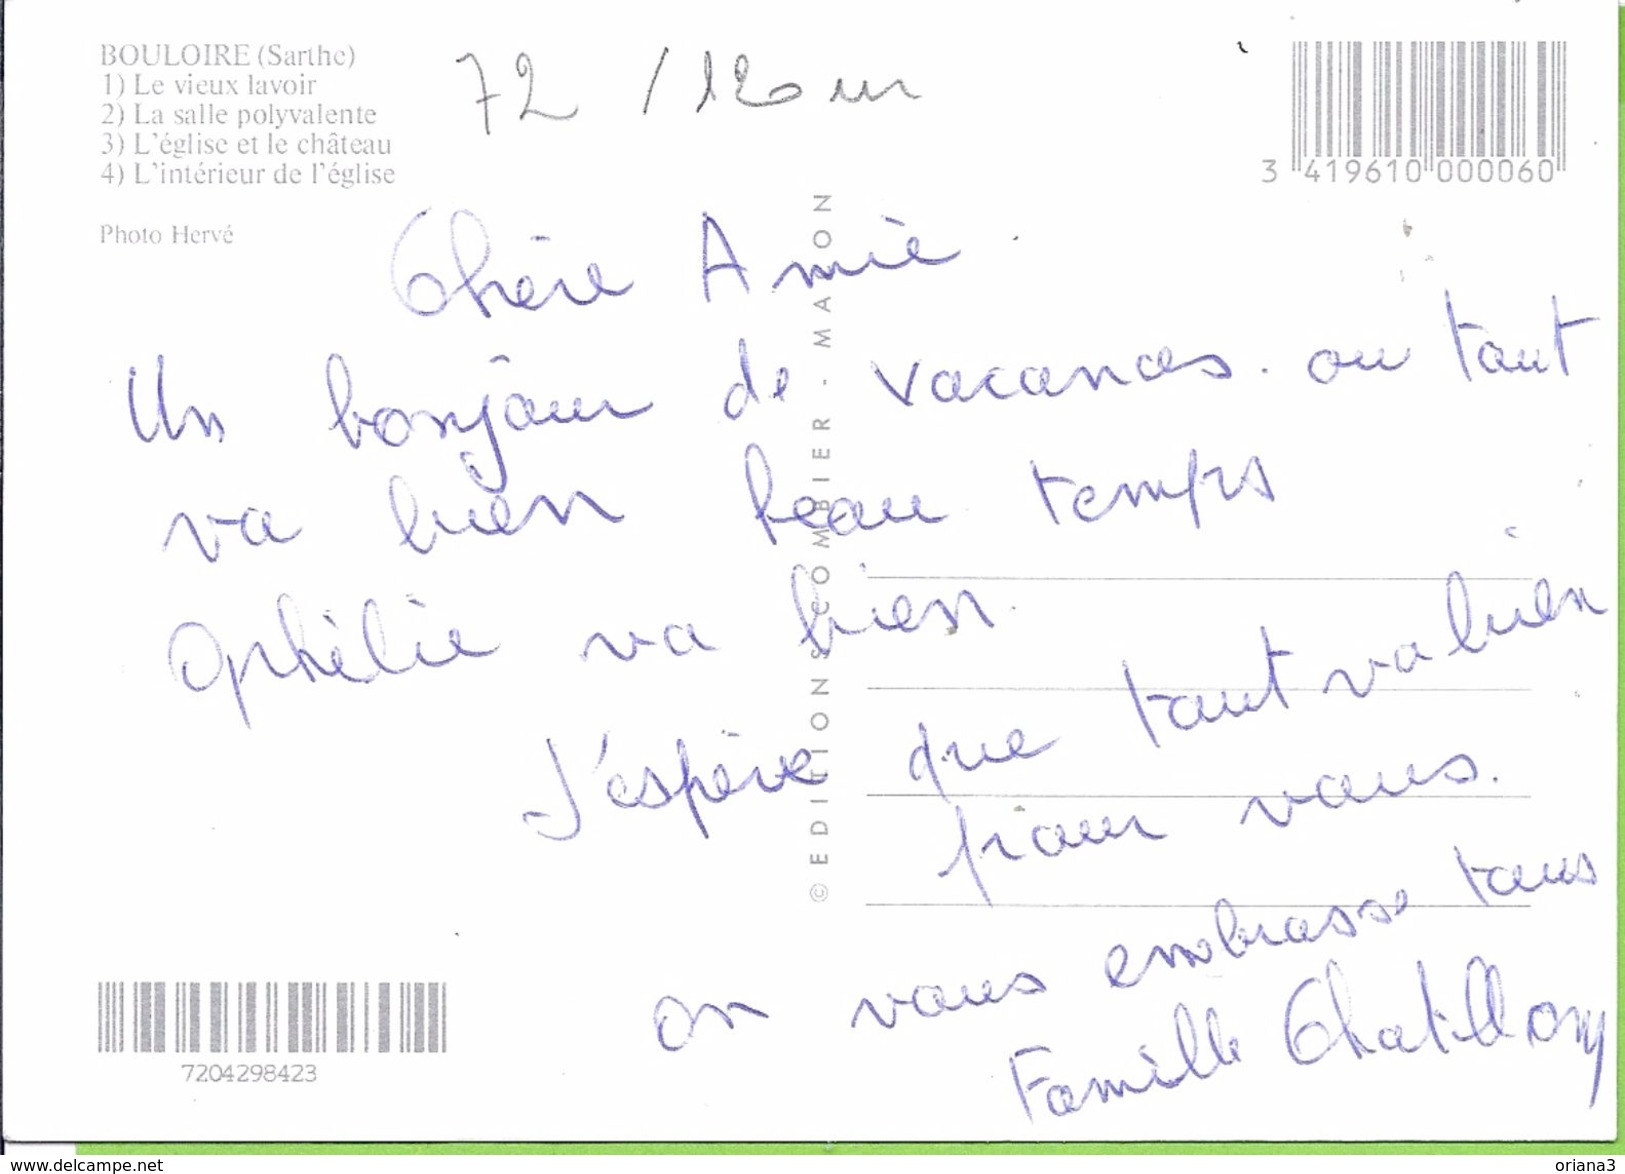 BOULOIRE (Sarthe)
1) Le vieux lavoir
2) La salle polyvalente
3) L'église et le château
4) L'intérieur de l'église
Photo Hervé
72 / 120 m
3 419610 000060
Chère Amie
Un bonjour de vacances. ou tout
va bien beau temps
Ophélie va bien.
J'espère que tout va bien
pour vous.
on vous embrasse tous
Famille Chatillon
© EDITIONS COMBIER - MACON
7204298423
www.delcampe.net
oriana3